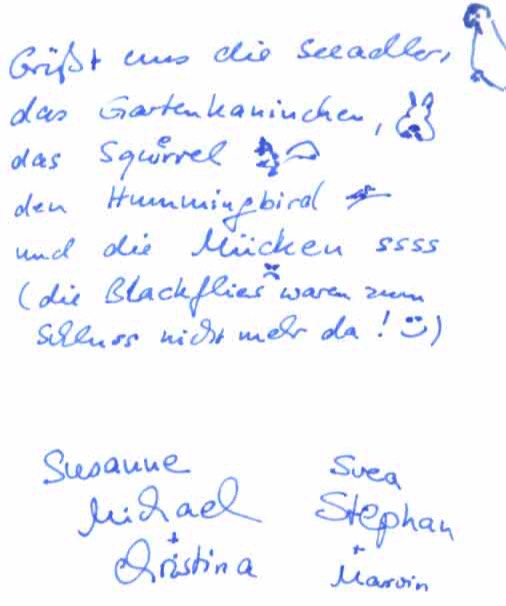 Grüßt uns die Seeadler,
das Gartenkaninchen,
das Squirrel
den Hummingbird
und die Mücken ssss
(die Blackflies waren zum
Schluss nicht mehr da! :-))
Susanne
Michael
+
Christina
Svea
Stephan
+
Marvin